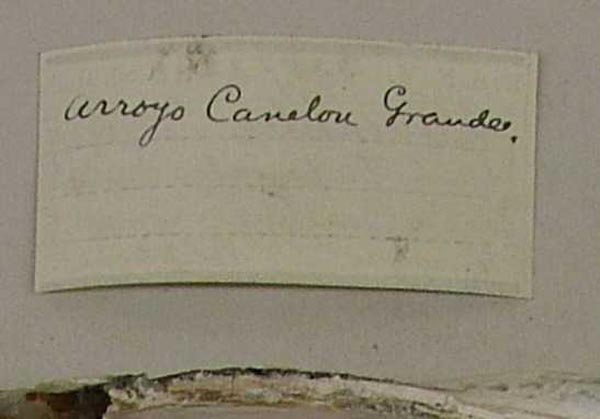 arroyo Canelou Grande.